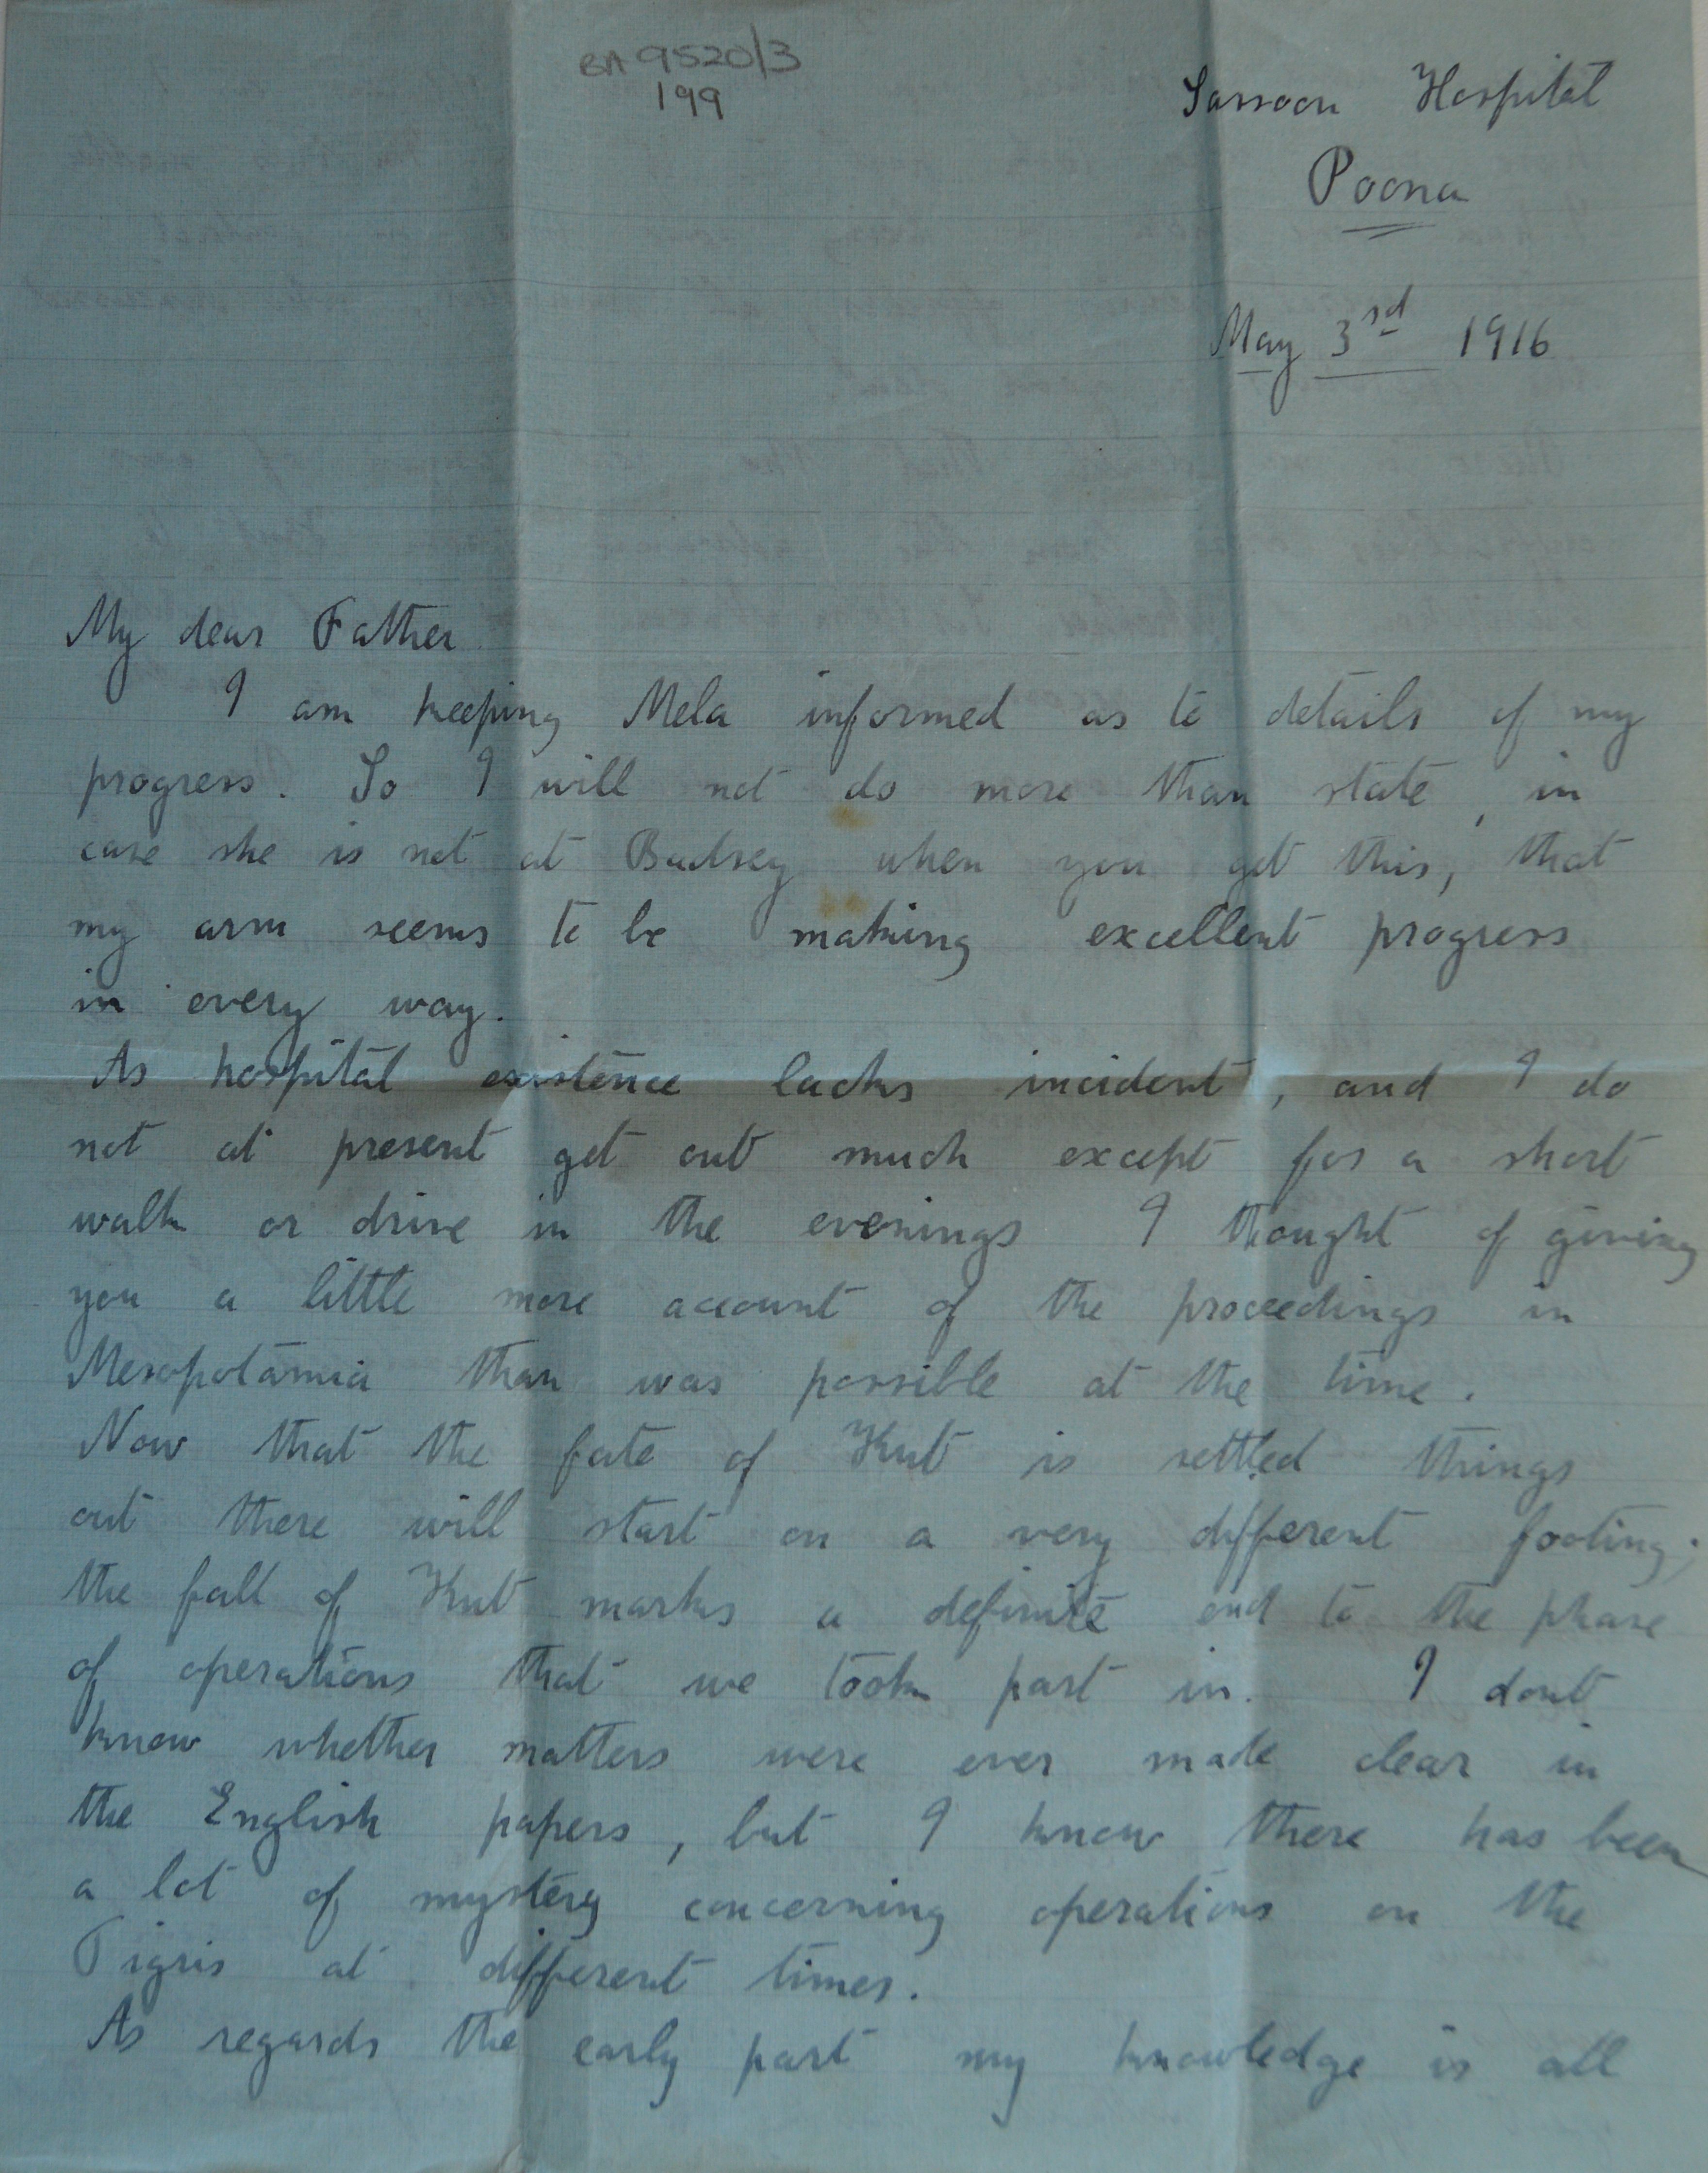 BA 9520/3
199
Sassoon Hospital
Poona
May 3rd 1916
My dear Father
I am keeping Mela informed as to details of my
progress. So I will not do more than state, in
case she is not at Badsey when you get this, that
my arm seems to be making excellent progress
in every way.
As hospital existence lacks incident, and I do
not at present get out much except for a short
walk or drive in the evenings I thought of giving
you a little more account of the proceedings in
Mesopotamia than was possible at the time.
Now that the fate of Kut is settled things
out there will start on a very different footing;
the fall of Kut marks a definite end to the phase
of operations that we took part in. I dont
know whether matters were ever made clear in
the English papers, but I know there has been
a lot of mystery concerning operations on the
Tigris at different times.
As regards the early part my knowledge is all